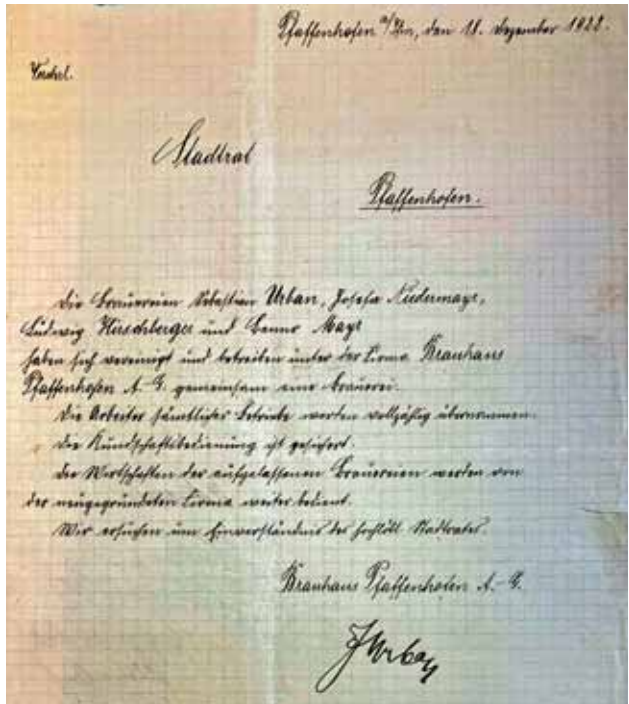 Pfaffenhofen a/Ilm, den 18. Dezember 1922.
Verehrl.
Stadtrat
Pfaffenhofen.
Die Brauereien Sebastian Urban, Josefa Niedermayr,
Ludwig Hirschberger und Benno Mayr
haben sich vereinigt und betreiben unter der Firma Brauhaus
Pfaffenhofen A. G. gemeinsam eine Brauerei.
Die Arbeiter sämtlicher Betriebe werden vollzählig übernommen.
Die Kundschaftsbedienung ist gesichert.
Die Wirtschaften der aufgelassenen Brauereien werden von
der neugegründeten Firma weiter bedient.
Wir ersuchen um Einverständnis des hochlöbl. Stadtrates.
Brauhaus Pfaffenhofen A.-G.
Urban